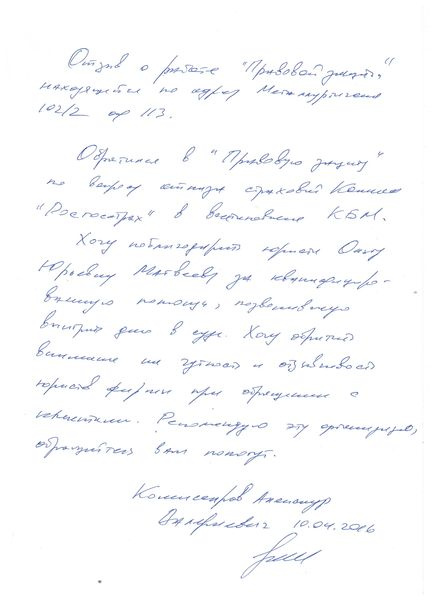 Отзыв о работе "Правовой защиты"
находящейся по адресу Металлургическая
102/2 оф 113.
Обратился в "Правовую защиту"
по вопросу отказа страховой компании
"Росгосстрах" в восстановлении КБМ.
Хочу поблагодарить юриста Ольгу
Юрьевну Матвееву за квалифициро-
ванную помощь, позволившую
выиграть дело в суде. Хочу обратить
внимание на чуткость и отзывчивость
юристов фирмы при обращении с
клиентами. Рекомендую эту организацию,
обращайтесь вам помогут.
Комиссаров Александр
Валерьевич 10.04.2016